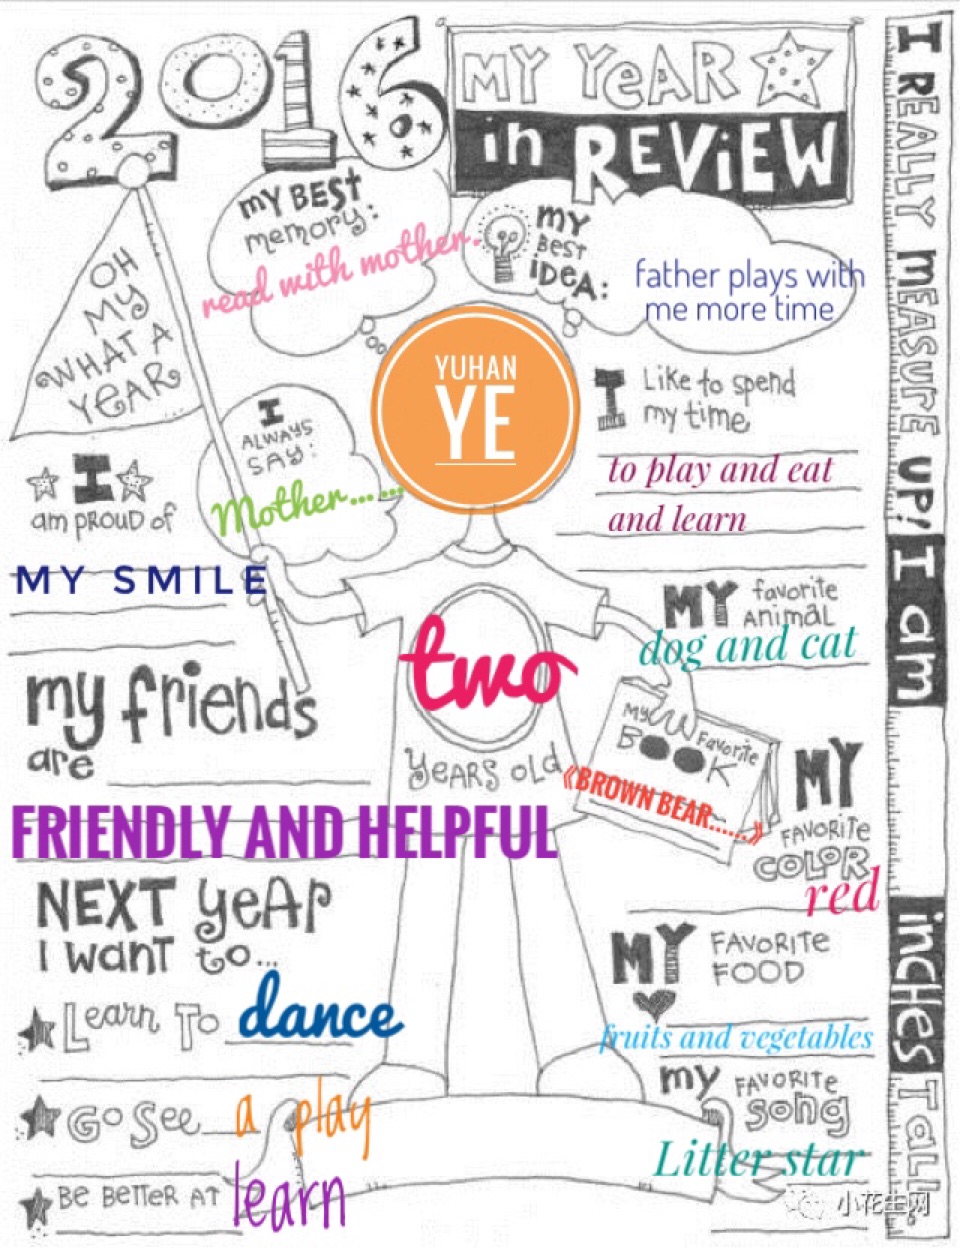 2016
MY YEAR
in REVIEW
OH
MY
WHAT A
YEAR
my BEST
memory:
read with mother.
my
BEST
iDEA:
father plays with
me more time
YUHAN
YE
I
ALWAYS
SAY:
Mother......
I Like to spend
my time
to play and eat
and learn
I
am PROUD of
MY SMILE
MY favorite
ANIMAL
dog and cat
two
YEARS OLD
my friends
are
FRIENDLY AND HELPFUL
My Favorite
BOOK
《BROWN BEAR......》
MY
FAVORiTE
COLOR
red
NEXT YeAr
I WANT to...
Learn To dance
Go See a play
BE BETTER AT learn
MY FAVORiTE
FOOD
fruits and vegetables
my FAVORiTE
song
Litter star
I REALLY MEASURE UP!
I am
inches Tall!
小花生网